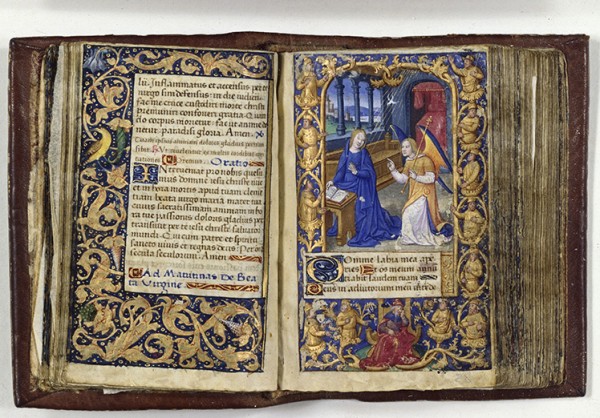 liū. Inflammatus et accensus per te
virgo sim defensus: in die iudicii.
fac me cruce custodiri morte christi
confoveri gratia. Quan
do corpus morietur: fac ut anime do
netur paradisi gloria. Amen.
animam doloris gladius pertran
sibit. ex multis cordibus cogi
tationes. Oremus. Oratio.
Interveniat pro nobis quesu
mus domine iesu christe nunc
et in hora mortis apud tuam clemen
tiam beata virgo maria mater tua
cuius sacratissimam animam in ho
ra tue passionis doloris gladius per
transivit per te iesu christe salvator
mundi. Qui cum patre et spiritu
sancto vivis et regnas deus. Per om
nia secula seculorum. Amen.
Ad Matutinas De Bea
ta Virgine.
Domine labia mea ape
ries. Et os meum annū
tiabit laudem tuam.
Deus in adiutorium meū intēde